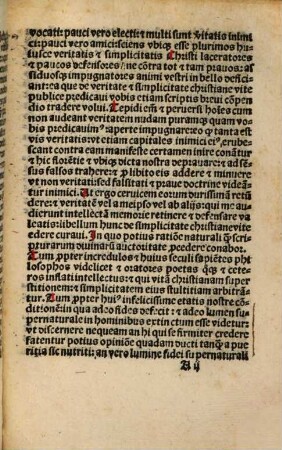 vocati: pauci vero electi: ⁊ multi sunt v̄itatis inimi
ci: pauci vero amici: sciens vbiq₃ esse plurimos hu
iusce veritatis ⁊ simplicitatis Christi laceratores
⁊ paucos defensores: ne cōtra tot ⁊ tam prauos: as
siduosq₃ impugnatores animi vestri in bello defici
ant: ea que de veritate ⁊ simplicitate christiane vite
publice predicaui vobis etiam scriptis breui cōpen
dio tradere volui. Tepidi em̄ ⁊ peruersi holes cum
non audeant veritatem nudam puramq₃ quam vo
bis predicauim⁹ aperte impugnare: eo ꝙ tanta est
vis veritatis: vt etiam capitales inimici ei⁹ erube
scant contra eam manifeste certamen inire conātur
⁊ hic florētie ⁊ vbiq₃ dicta nostra deprauare: ⁊ ad
sensus falsos trahere: ⁊ p libito eis addere ⁊ minuere
vt non veritatis sed falsitati ⁊ praue doctrine videā
tur inimici. At ergo ceruicem eorum durissimā retū
dere: ⁊ veritatē vel a meipso vel ab alijs: quī me au
dierunt intellectā memorie retinere ⁊ defensare va
leatis: libellum hunc de simplicitate christiane vite
edere curaui. In quo potius ratiōe naturali q̄ scri
pturarum diuinarū auctoritate p̄cedere conabor.
Tum ꝓpter incredulos ⁊ huius seculi sapiētes phi
losophos videlicet ⁊ oratores poetas q₃ ⁊ cete
ros inflati intellectus: ⁊ qui vitā christianam super
stitionem: ⁊ simplicitatem eius stultitiam arbitrā
tur. Tum ꝓpter hui⁹ infelicissime etatis nostre cō
ditionē: in qua adeo fides defecit: ⁊ adeo lumen su
pernaturale in hominibus extinctum esse videtur:
vt discernere nequeam an hi qui se firmiter credere
fatentur potius opiniōe quadam ducti tanq̄ a pue
ritia sic nutriti: an vero lumine fidei supernaturali
A ij